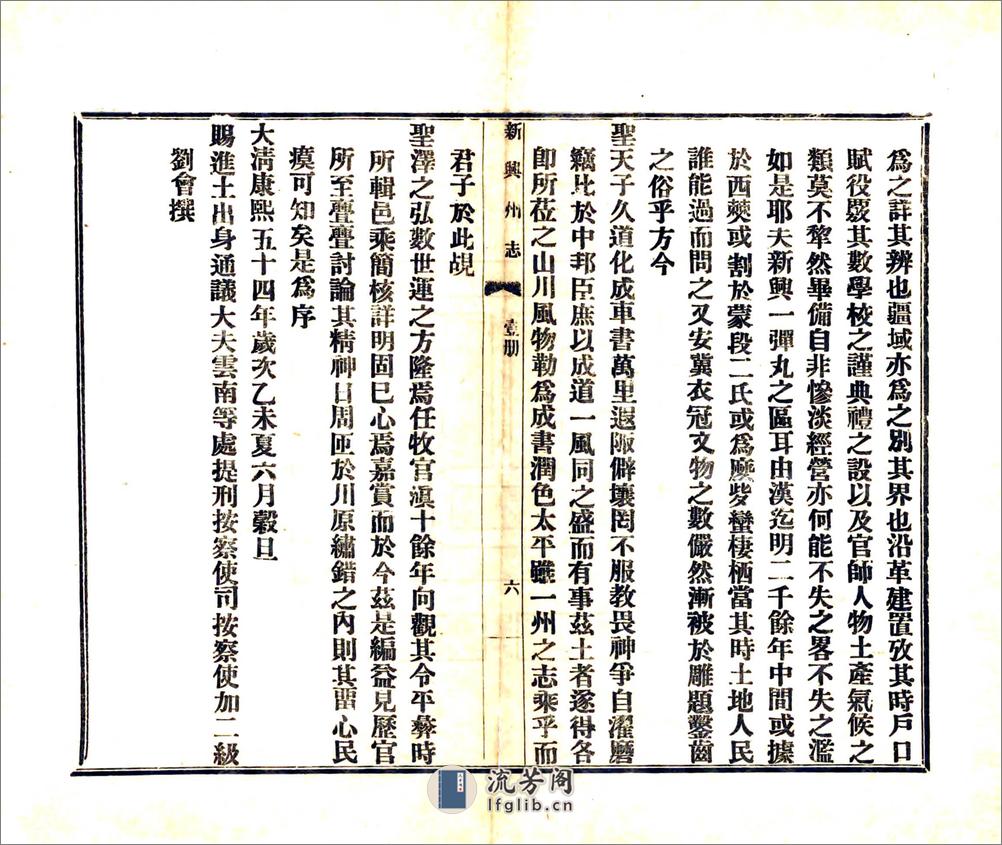 爲之詳其辨也疆域亦爲之別其界也沿革建置攷其時戶口
賦役覈其數學校之謹典禮之設以及官師人物土產氣候之
類莫不犂然畢備自非慘淡經營亦何能不失之畧不失之濫
如是耶夫新興一彈丸之區耳由漢迄明二千餘年中間或據
於西爨或割於蒙段二氏或爲麽些蠻棲栖當其時土地人民
誰能過而問之又安冀衣冠文物之數儼然漸被於雕題鑿齒
之俗乎方今
聖天子久道化成車書萬里遐陬僻壤罔不服教畏神爭自濯磨
竊比於中邦臣庶以成道一風同之盛而有事茲土者遂得各
卽所莅之山川風物勒爲成書潤色太平雖一州之志乘乎而
新興州志
壹册
六
君子於此覘
聖澤之弘敷世運之方隆焉任牧官滇十餘年向觀其令平彝時
所輯邑乘簡核詳明固已心焉嘉賞而於今茲是編益見歷官
所至亹亹討論其精神日周匝於川原繡錯之內則其畱心民
瘼可知矣是爲序
大淸康熙五十四年歲次乙未夏六月穀旦
賜進士出身通議大夫雲南等處提刑按察使司按察使加二級
劉會撰
流芳阁
lfglib.cn